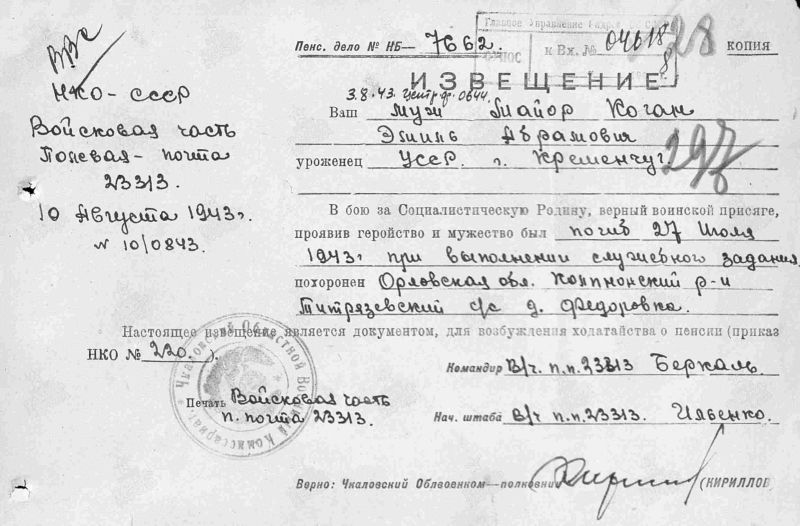 Главное Управление
Пенс. дело № НБ— 7662. к Вх. № 04618 28 КОПИЯ
8
ВВС
НКО - СССР
Войсковая часть
Полевая - почта
23313.
10 Августа 1943г.
N 10/0843.
ИЗВЕЩЕНИЕ
3.8.43. Центр. ф. 0644.
Ваш муж Майор Коган
Эмиль Абрамович
уроженец УССР. г. Кременчуг.
297
В бою за Социалистическую Родину, верный воинской присяге,
проявив геройство и мужество был погиб 27 Июля
1943г при выполнении служебного задания
похоронен Орловская обл. Колпнонский р-и
Титрязевский с/с д. Федоровка.
Настоящее извещение является документом, для возбуждения ходатайства о пенсии (приказ
НКО № 220.).
Чкаловский Областной Военный Комиссариат
Командир В/ч. п.п. 23313 Беркаль
Печать Войсковая часть
п. почта 23313.
Нач. штаба В/ч п.п. 23313. Ильенко.
Верно: Чкаловский Облвоенком—полковник (КИРИЛЛОВ)